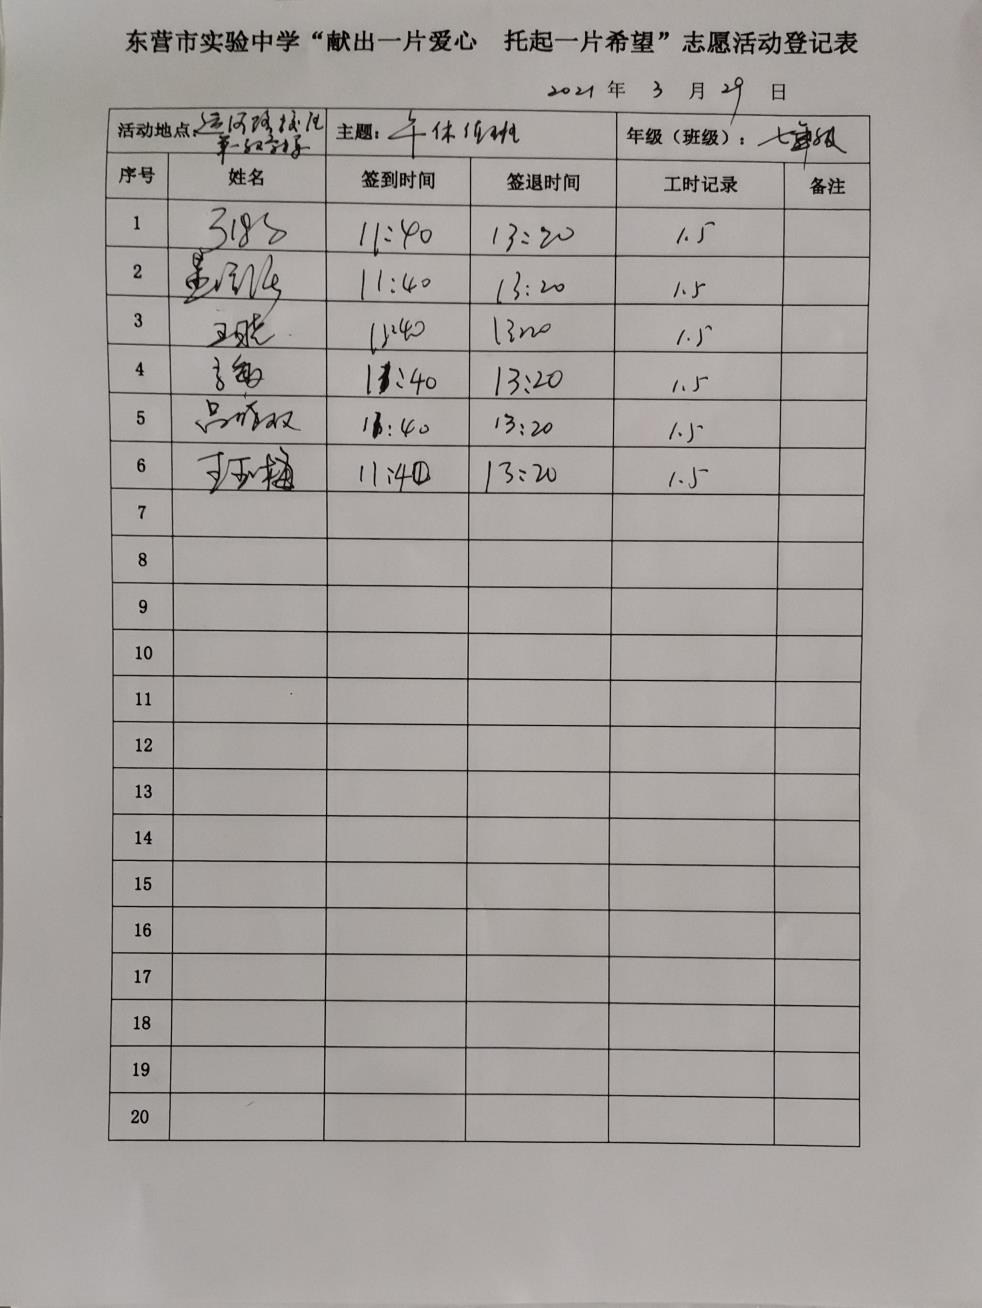 东营市实验中学“献出一片爱心 托起一片希望”志愿活动登记表
2021 年 3 月 29 日
活动地点：运河路校区 主题：午休值班 年级（班级）：七年级
序号 姓名 签到时间 签退时间 工时记录 备注
1 11:40 13:20 1.5
2 11:40 13:20 1.5
3 王晓 11:40 13:20 1.5
4 11:40 13:20 1.5
5 吕双 11:40 13:20 1.5
6 王玉梅 11:40 13:20 1.5
7
8
9
10
11
12
13
14
15
16
17
18
19
20